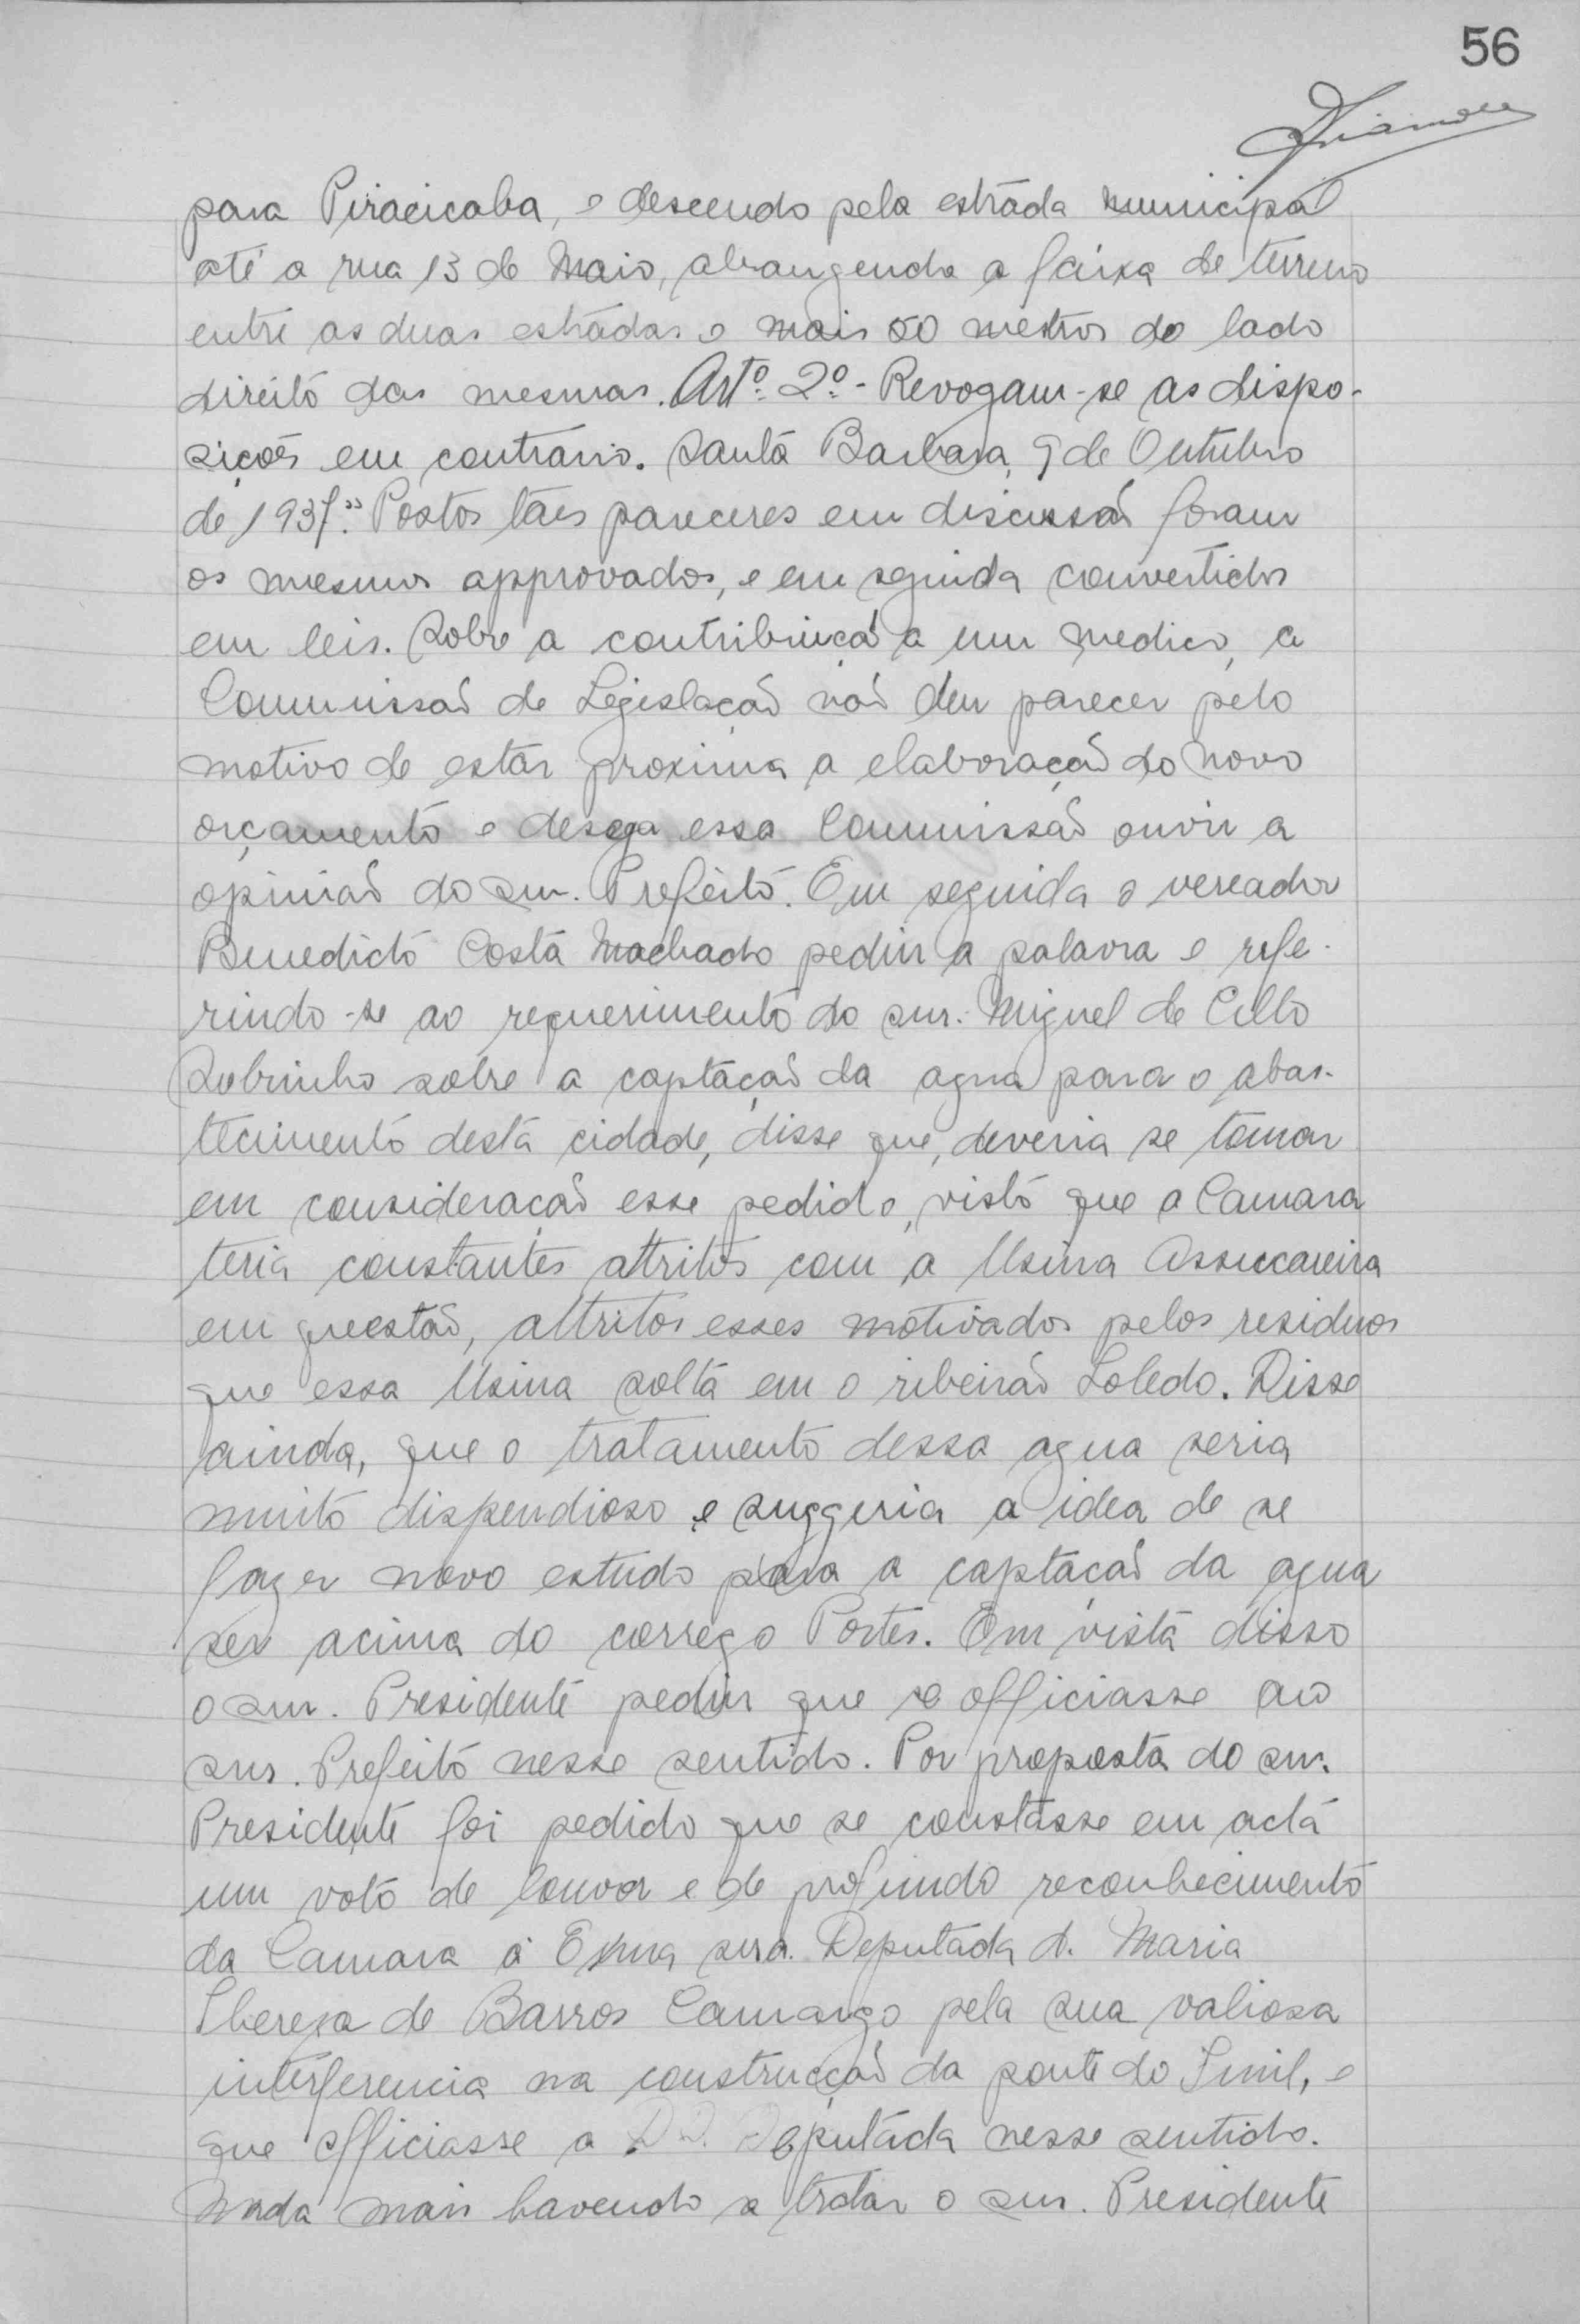 56
para Piracicaba, e descendo pela estrada municipal
até a rua 13 de Maio, abrangendo a faixa de terreno
entre as duas estradas e mais 50 metros do lado
direito das mesmas. Artº. 2º.- Revogam-se as dispo-
sições em contrario. Santa Barbara, 9 de Outubro
de 1937." Postos taes pareceres em discussão foram
os mesmos approvados, e em seguida convertidos
em leis. Sobre a contribuição a um medico, a
Commissão de Legislação não deu parecer pelo
motivo de estar proxima a elaboração do novo
orçamento e deseja essa Commissão ouvir a
opinião do snr. Prefeito. Em seguida o vereador
Benedicto Costa Machado pediu a palavra e refe-
rindo-se ao requerimento do snr. Miguel de Cillo
Sobrinho sobre a captação da agua para o abas-
tecimento desta cidade, disse que, deveria se tomar
em consideração esse pedido, visto que a Camara
teria constantes attritos com a Usina Assuccareira
em questão, attritos esses motivados pelos residuos
que essa Usina solta em o ribeirão Toledo. Disse
ainda, que o tratamento dessa agua seria
muito dispendioso e suggeria a idea de se
fazer novo estudo para a captação da agua
ser acima do corrego Pontes. Em vista disso
o snr. Presidente pediu que se officiasse ao
snr. Prefeito nesse sentido. Por proposta do snr.
Presidente foi pedido que se constasse em acta
um voto de louvor e de profundo reconhecimento
da Camara á Exma snra. Deputada d. Maria
Thereza de Barros Camargo pela sua valiosa
interferencia na construcção da ponte do Funil, e
que officiasse a DD. Deputada nesse sentido.
Nada mais havendo a tratar o snr. Presidente